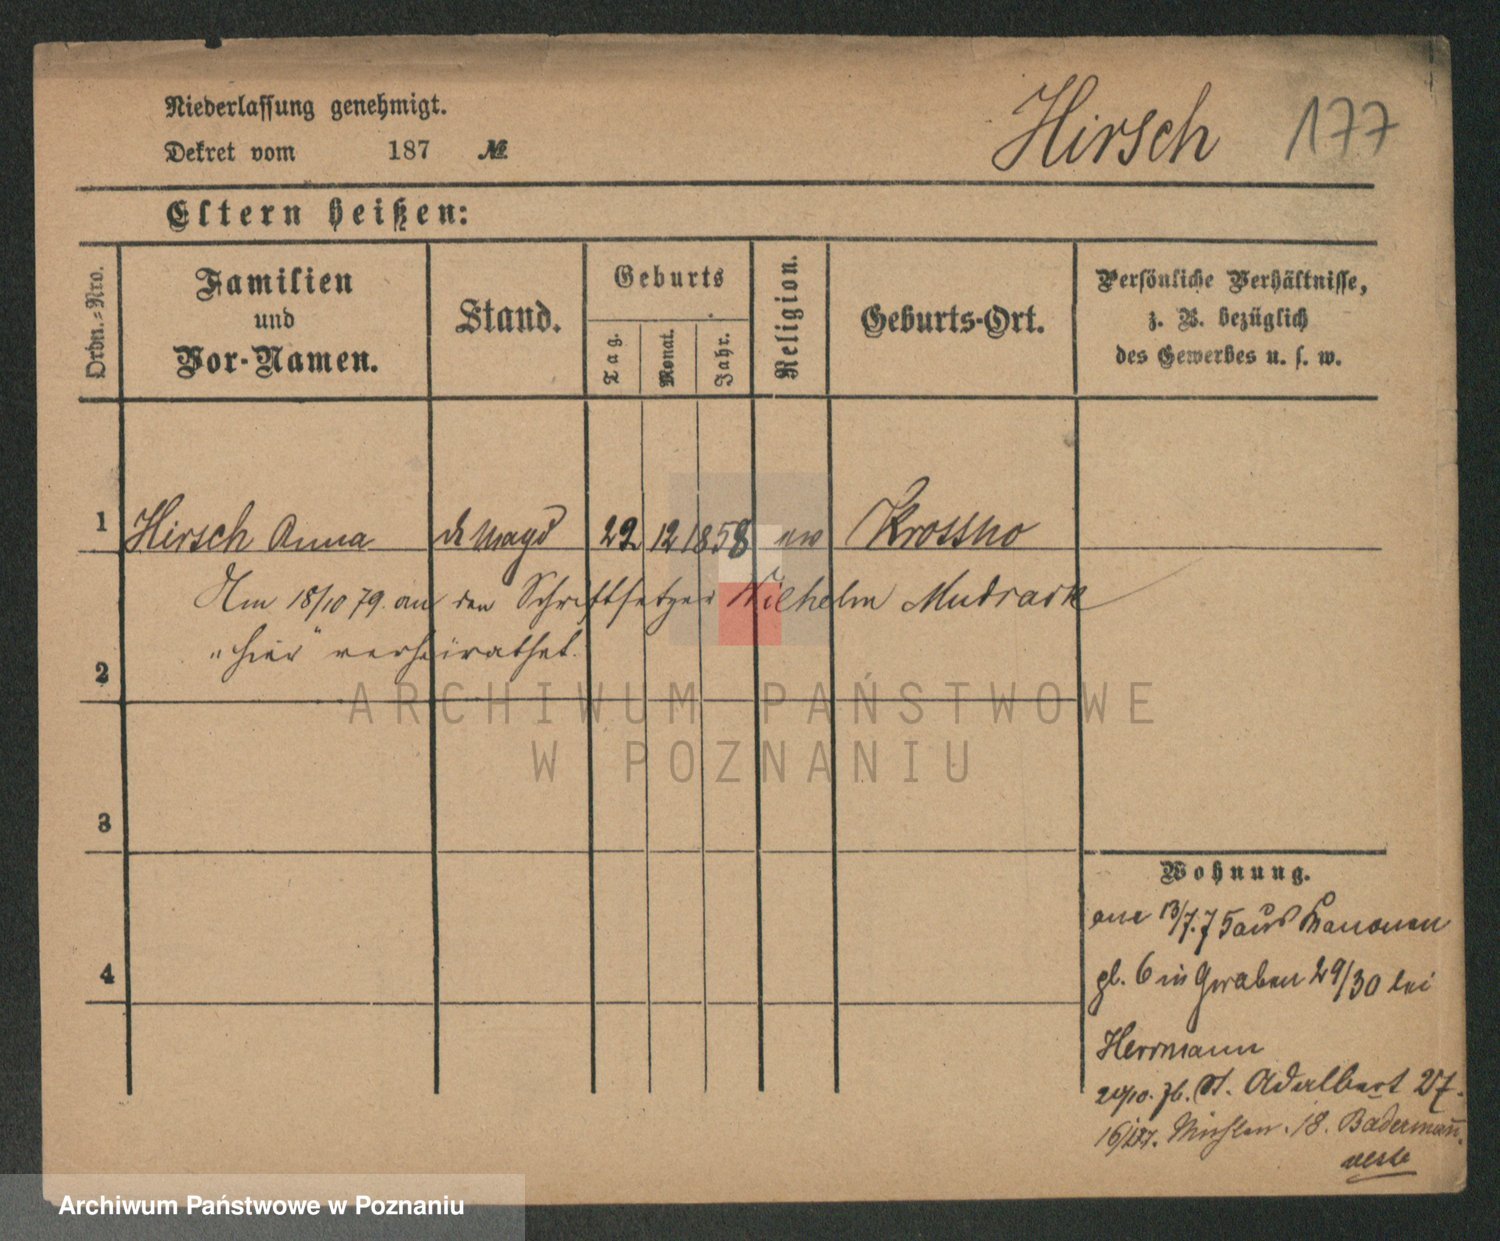 Niederlassung genehmigt.
Dekret vom 187 №
Hirsch 177
Eltern heißen:
Ordn.=Nro.
Familien
und
Vor-Namen.
Stand.
Geburts
Tag.
Monat.
Jahr.
Religion.
Geburts-Ort.
Persönliche Verhältnisse,
z. B. bezüglich
des Gewerbes u. s. w.
1 Hirsch Anna d Magd 22 12 1858 ev Krossno
Am 18/10 79. an den Schriftsetzer Wilhelm Mudrack
"hier" verheirathet.
2
ARCHIWUM PAŃSTWOWE
W POZNANIU
3
4
Wohnung.
13/7.75 aus Kanonen
pl. 6 in Graben 29/30 bei
Herrmann
St. Adalbert 27.
Mühlen. 18. Badermañ
Archiwum Państwowe w Poznaniu